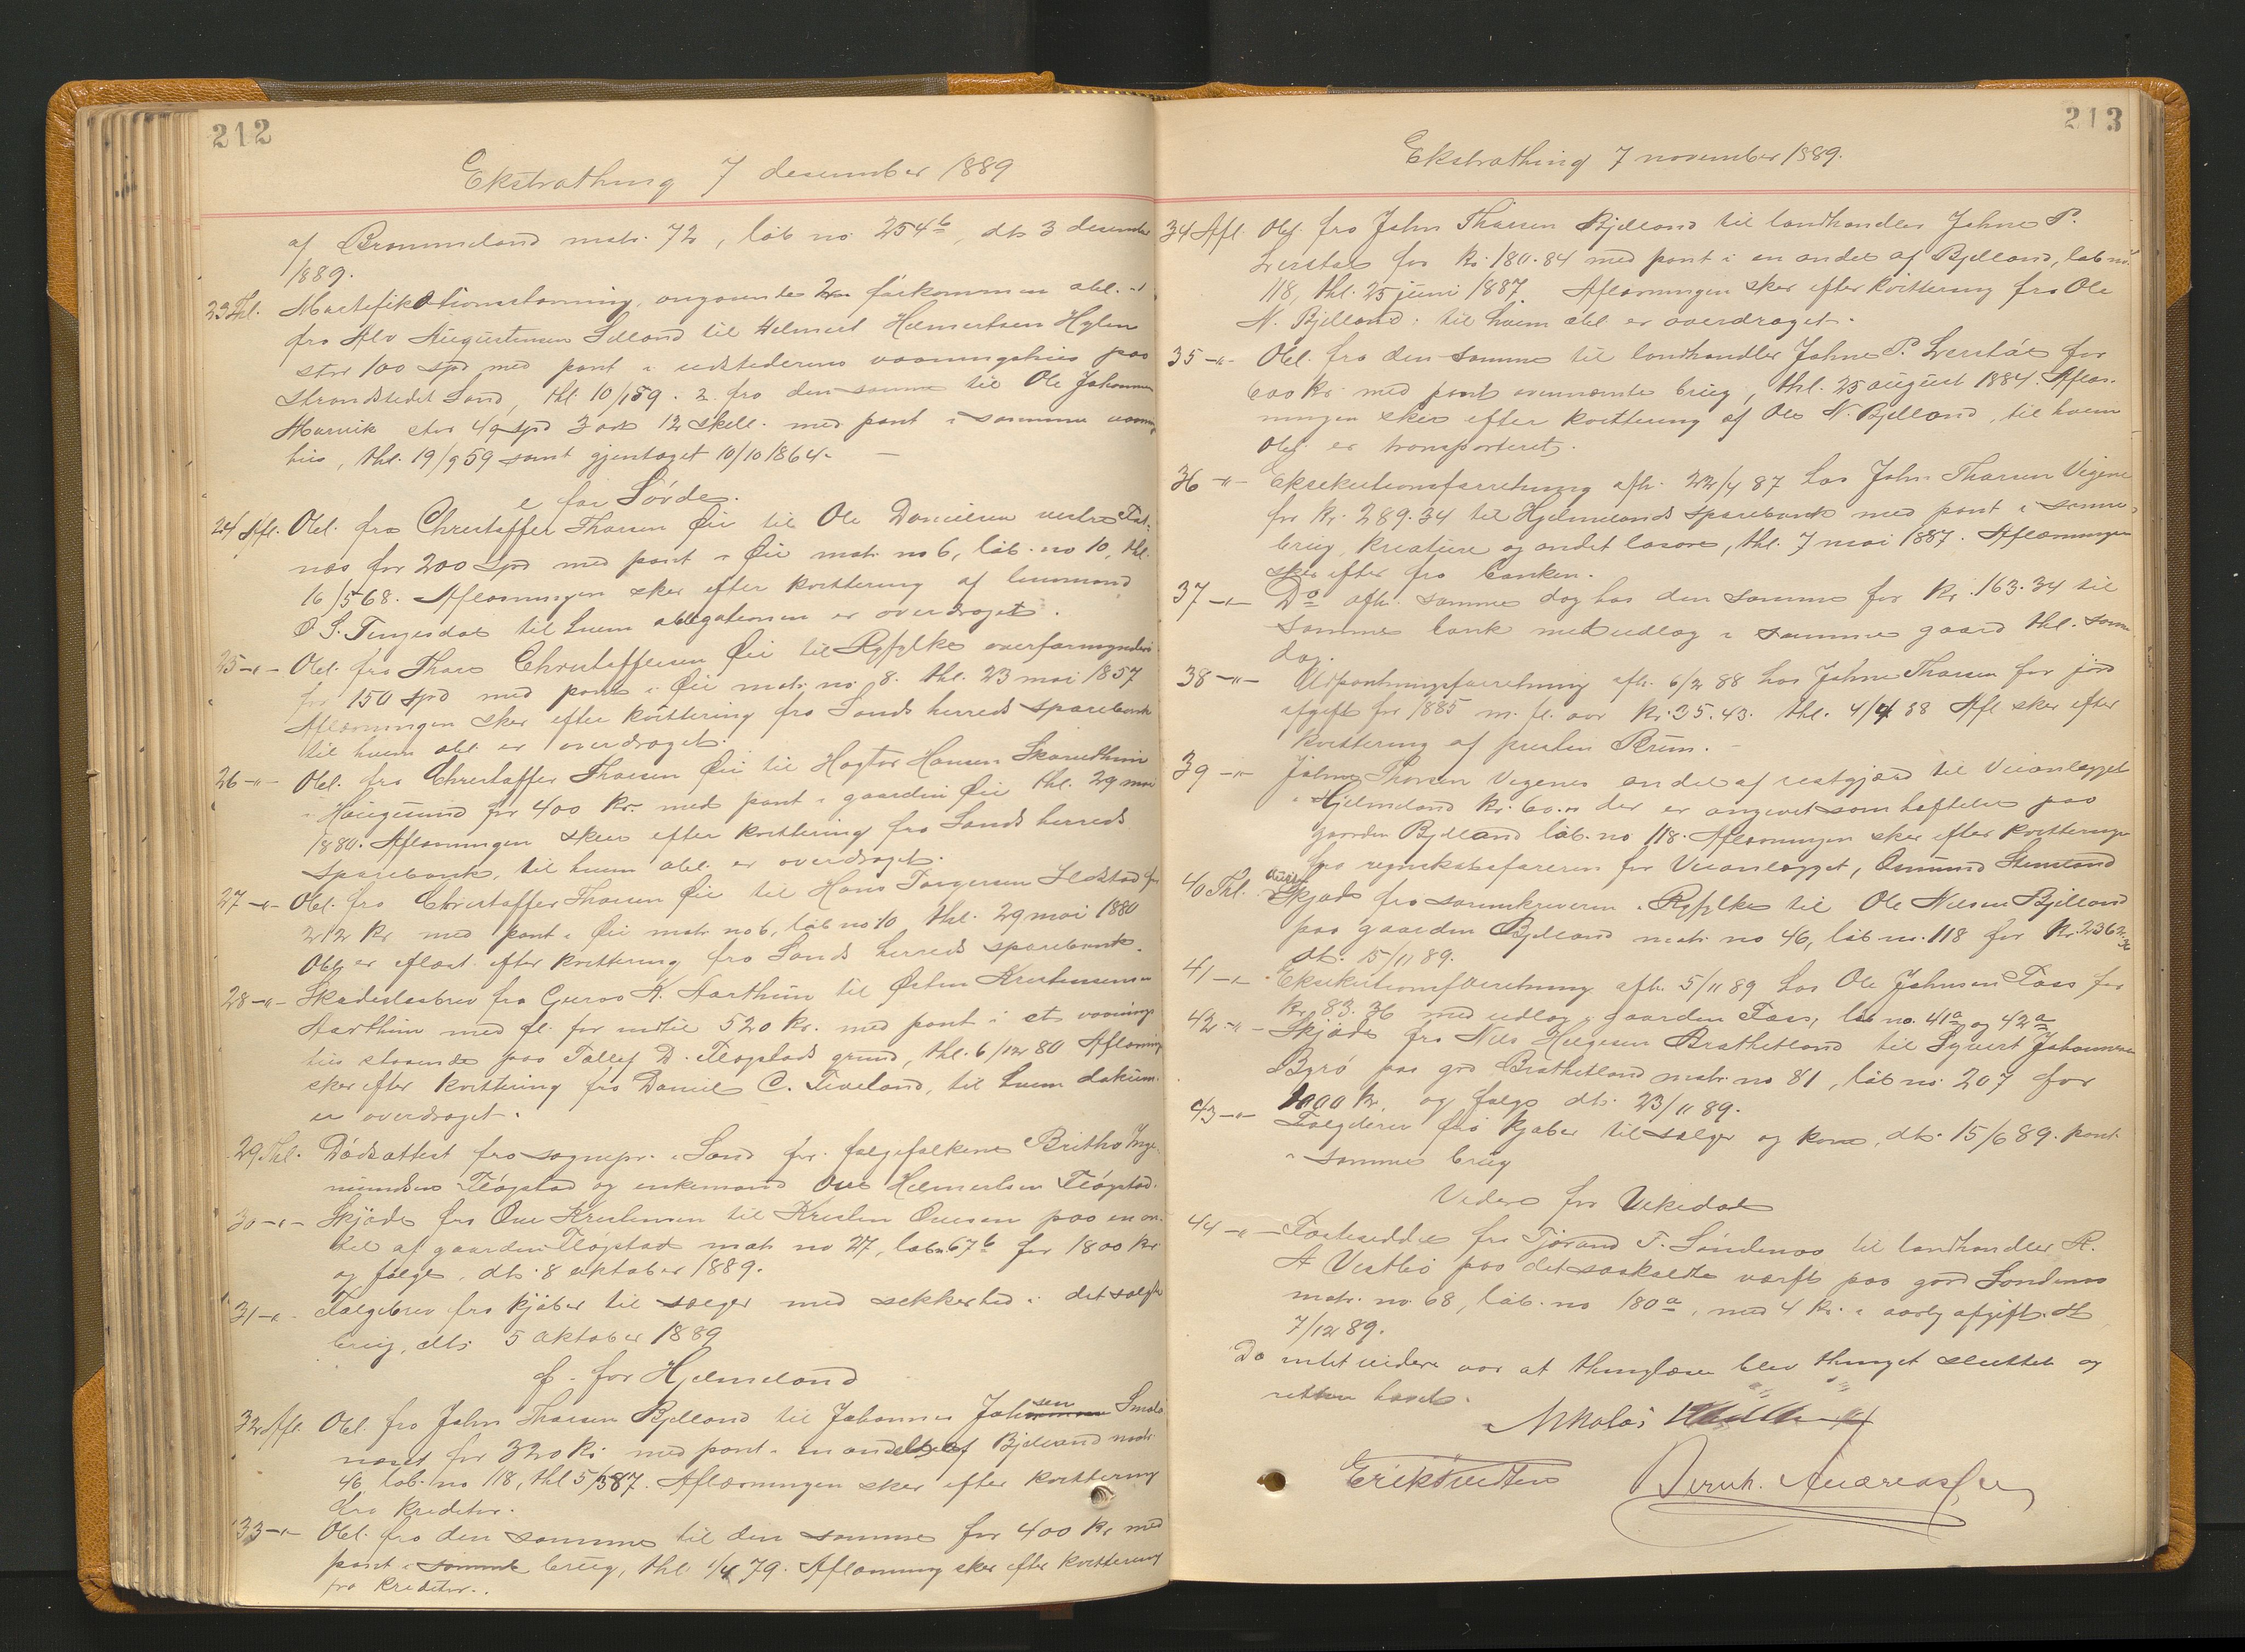 212
Ekstrathing 7 desember 1889
af Brommeland matr. 72, løb no 254b, dt. 3 desember
1889.
23 Thl. Mortifikationsstevning, angaaende 2 forkommen obl. 1.
fra Alv Augustensen Selland til Helmert Helmertsen Hylen
stor 100 spd med pant i udstederens vaaningshus paa
Strandstedet Sand, thl. 10/1 59. 2. fra den samme til Ole Johannesen
stor 49 spd 3 ort 12 skill. med pant i samme
hus, thl. 19/9 59 samt gjentaget 10/10 1864. —
e for Søvde.
24 Afl. Obl. fra Christoffer Thorsen Øie til Ole Danielsen vestre
næs for 200 Spd med pant i Øie matr. no 6, løb. no 10, thl.
16/5 68. Aflæsningen sker efter kvittering af lensmand
O S. Tengesdal til hvem obligationen er overdraget.
25 -"- Obl. fra Thore Christoffersen Øie til Ryfylke overformynderi
for 150 spd med pant i Øie matr. no. 8. thl. 23 mai 1857
Aflæsningen sker efter kvittering fra Sands herreds sparebank
til hvem obl. er overdraget.
26 -"- Obl. fra Christoffer Thorsen Øie til Hagtor Hansen
i Haugesund for 400 kr. med pant i gaarden Øie thl. 29 mai
1880. Aflæsningen skeer efter kvittering fra Sands herreds
sparebank, til hvem obl. er overdraget.
27 -"- Obl. fra Christoffer Thorsen Øie til Hans Torgersen Ilstad for
212 kr med pant i Øie matr no 6, løb no 10 thl. 29 mai 1880
Obl. er aflæst efter kvittering fra Sands herreds sparebank.
28 -"- Skadesløsbrev fra Guroe K. Aarthun til Østen Kristensen
Aarthun med fl. for indtil 520 kr. med pant i et vaanings
hus staaende paa Tollef D. Fløgstads grund, thl. 6/12 80 Aflæsning
sker efter kvittering fra Daniel C. Tveland, til hvem dokum.
er overdraget.
29 Thl. Dødsattest fra sognepr. i Sand for følgefolkene Britha Inge
mundsen Fløgstad og enkemand Ove Helmertsen Fløgstad.
30 -"- Skjøde fra Ove Kristensen til Kristen Ovesen paa en an
del af gaarden Fløgstad matr no 27, løbn 67b for 1800 kr
og følge, dt. 8 oktober 1889.
31 -"- Følgebrev fra kjøber til sælger med sikkerhed i det solgte
brug, dt. 5 oktober 1889
f. for Hjelmeland
32 Afl. Obl. fra John Thorsen Bjelland til Johannes Johansen
næset for 320 kr med pant i en andel af Bjelland matr
46, løb. no 118, thl 5/3 87. Aflæsningen sker efter kvittering
fra kreditor.
33 -"- Obl. fra den samme til den samme for 400 kr med
pant i samme brug, thl. 1/4 79. Aflæsning sker efter kvittering
fra kreditor.
213
Ekstrathing 7 november 1889.
34 Afl. Obl. fra John Thorsen Bjelland til landhandler Johne P.
for kr. 180.84 med pant i en andel af Bjelland, løb no.
118, thl. 25 juni 1887. Aflæsningen sker efter kvittering fra Ole
N. Bjelland, til hvem obl er overdraget.
35 -"- Obl. fra den samme til landhandler Johne P. for
600 kr med pant ovennævnte brug, thl. 25 august 1884. Aflæs-
ningen skeer efter kvittering af Ole N. Bjelland, til hvem
obl. er transporteret.
36 -"- Eksekutionsforretning afh. 22/4 87 hos John Thorsen Vigene
for kr. 289.34 til Hjelmelands sparebank med pant i samme
brug, kreature og andet løsøre, thl. 7 mai 1887. Aflæsningen
sker efter fra banken.
37 -"- Do afh. samme dag hos den samme for kr. 163.34 til
samme bank med udlæg i samme gaard thl. samme
dag.
38 -"- Udpantningsforretning afh. 6/2 88 hos Johne Thorsen for jord
afgift for 1885 m. fl. aar kr. 35.43. thl. 4/4 88 Afl sker efter
kvittering af presten Bruun. —
39 -"- Johne Thorsen Vegenes andel af restgjæld til Veianlægget
i Hjelmeland kr. 60.00 der er angivet som heftelse paa
gaarden Bjelland løb. no 118. Aflæsningen sker efter kvittering
fra regnskabsføreren for Veianlægget, Osmund Stensland
40 Thl. Skjøde fra sorenskriveren i Ryfylke til Ole Nilsen Bjelland
paa gaarden Bjelland matr. no 46, løb no. 118 for kr. 2362.36
dt. 15/11 89.
41 -"- Eksekutionsforretning afh. 5/11 89 hos Ole Johnsen Foss for
kr. 83.36 med udlæg i gaarden Foss, løb no. 41a og 42a
42 -"- Skjøde fra Nils Helgesen Brathetland til Syvert Johannesen
Byrø paa grd Brathetland matr. no 81, løb no. 207 for
1000 kr. og følge dt. 23/11 89.
43 -"- Følgebrev fra kjøber til sælger og kone, dt. 15/6 89. pant
i samme brug
Videre for Vikedal
44 -"- Festeseddel fra Tjøran T. Søndenaa til landhandler R.
A Vestbø paa det saakaldte værft paa grd Søndenaa
matr. no. 68, løb. no 180a, med 4 kr. i aarlig afgift. dt
7/12 89.
Da intet videre var at thinglæse blev thinget sluttet og
retten hævet.
Nikolai
Bernh. Andreassen